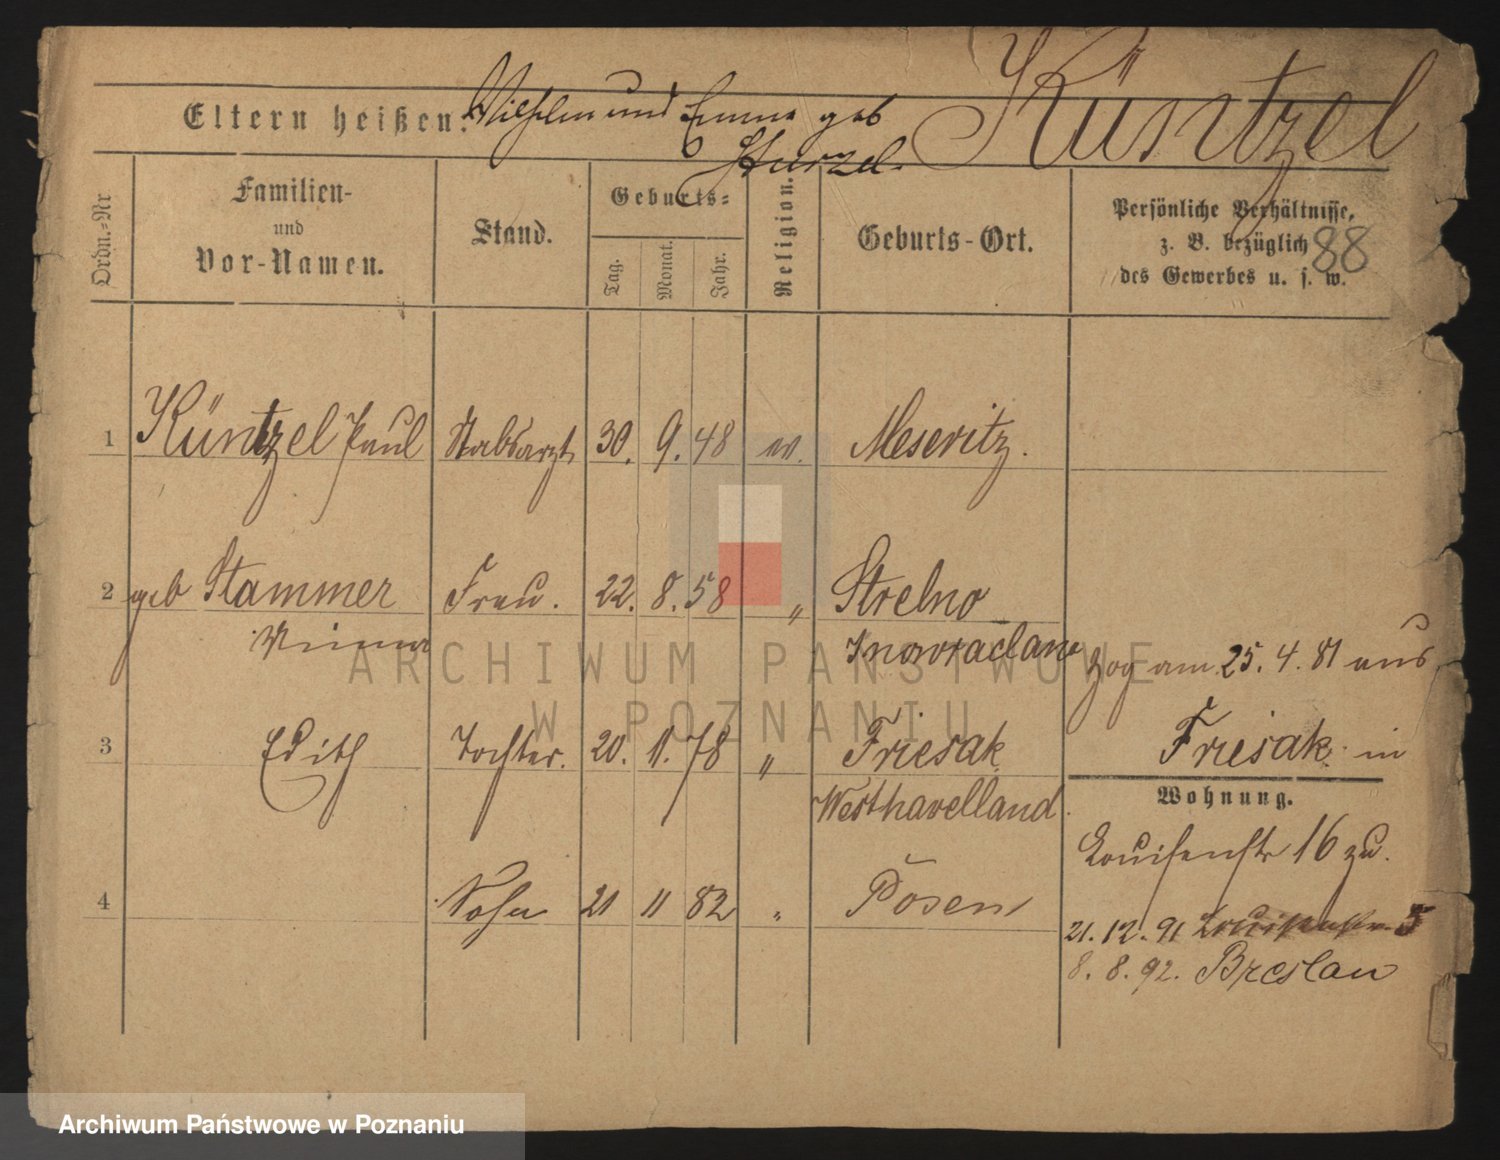 Küntzel
Eltern heißen: Wilhelm und Emma geb
Sturzel.
Ordn.-Nr
Familien-
und
Vor-Namen.
Stand.
Geburts-
Tag.
Monat.
Jahr.
Religion.
Geburts-Ort.
Persönliche Verhältnisse,
z. B. bezüglich
des Gewerbes u. s. w.
88
1 Küntzel Paul Stabsarzt 30. 9. 48 ev. Meseritz.
2 geb Stammer Frau. 22. 8. 58 " Strelno
Minna Inowraclaw
zog am 25. 4. 81 aus
3 Edith Tochter. 20. 11. 78 " Friesak
Westhavelland
Friesak in
Wohnung.
Louisenstr 16 zu.
4 Sohn 21 11 82 " Posen
21. 12. 91 Louisenstr. 5
8. 8. 92. Breslau
ARCHIWUM PAŃSTWOWE
W POZNANIU
Archiwum Państwowe w Poznaniu